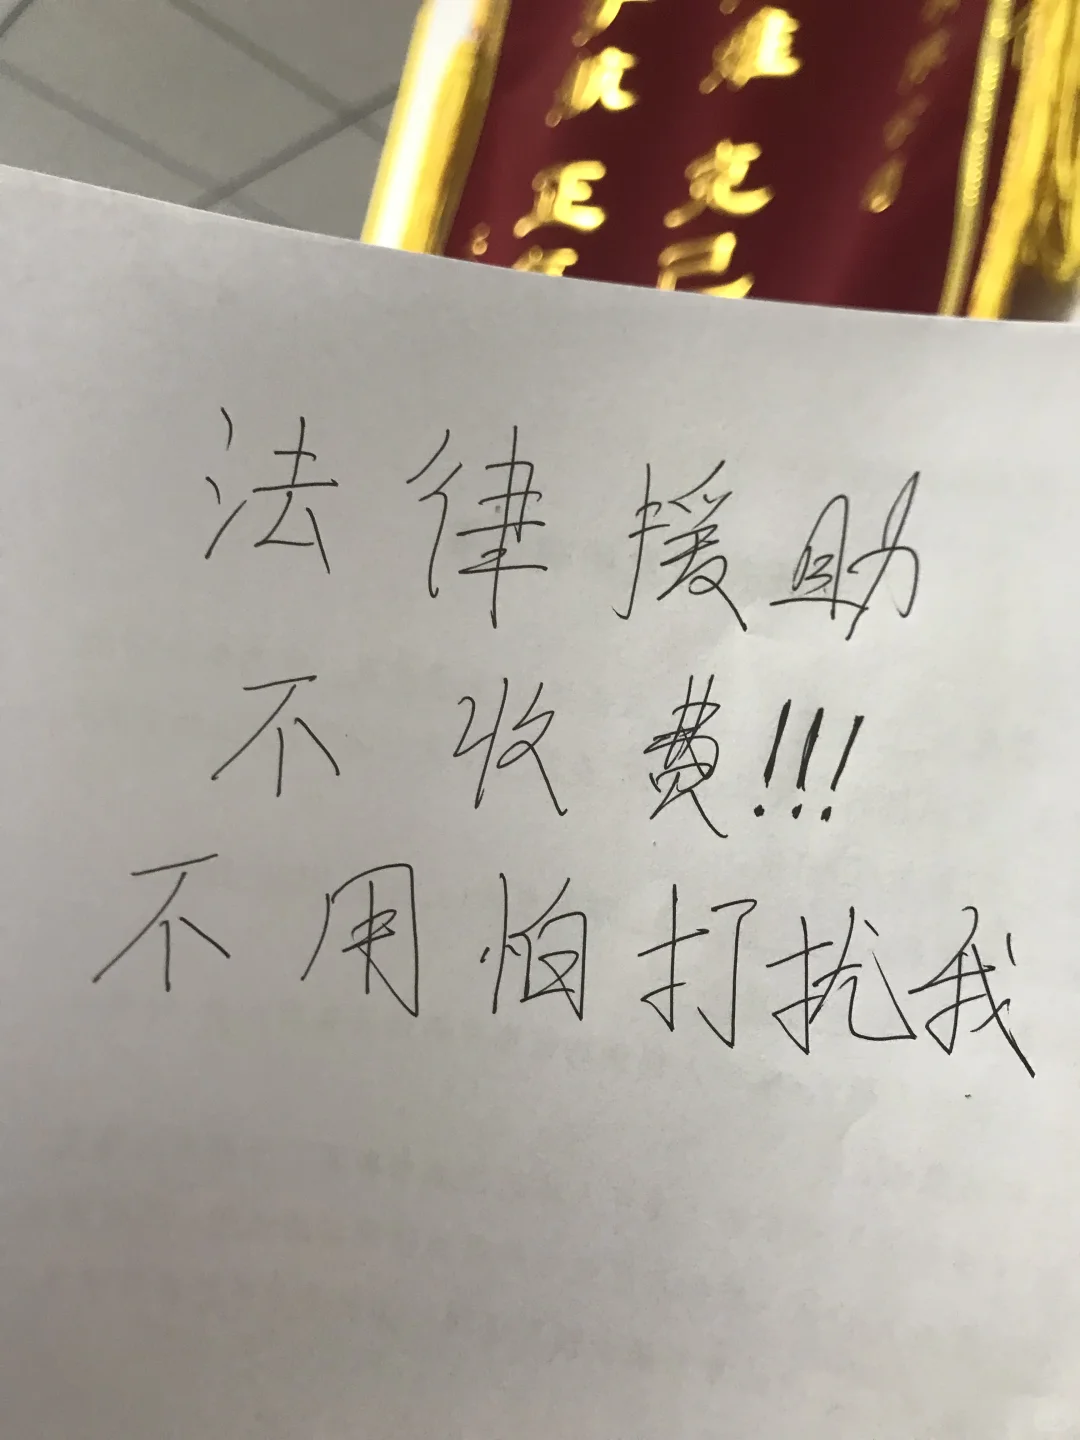 法律援助
不收费!!!
不用怕打扰我
克己
正